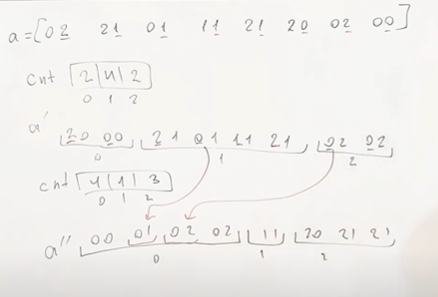 a=[02 21 01 11 21 20 02 00]
cnt 2 4 2
0 1 2
a' 20 00 21 01 11 21 02 02
0 1 2
cnt 4 1 3
0 1 2
a'' 00 01 02 02 11 20 21 21
0 1 2